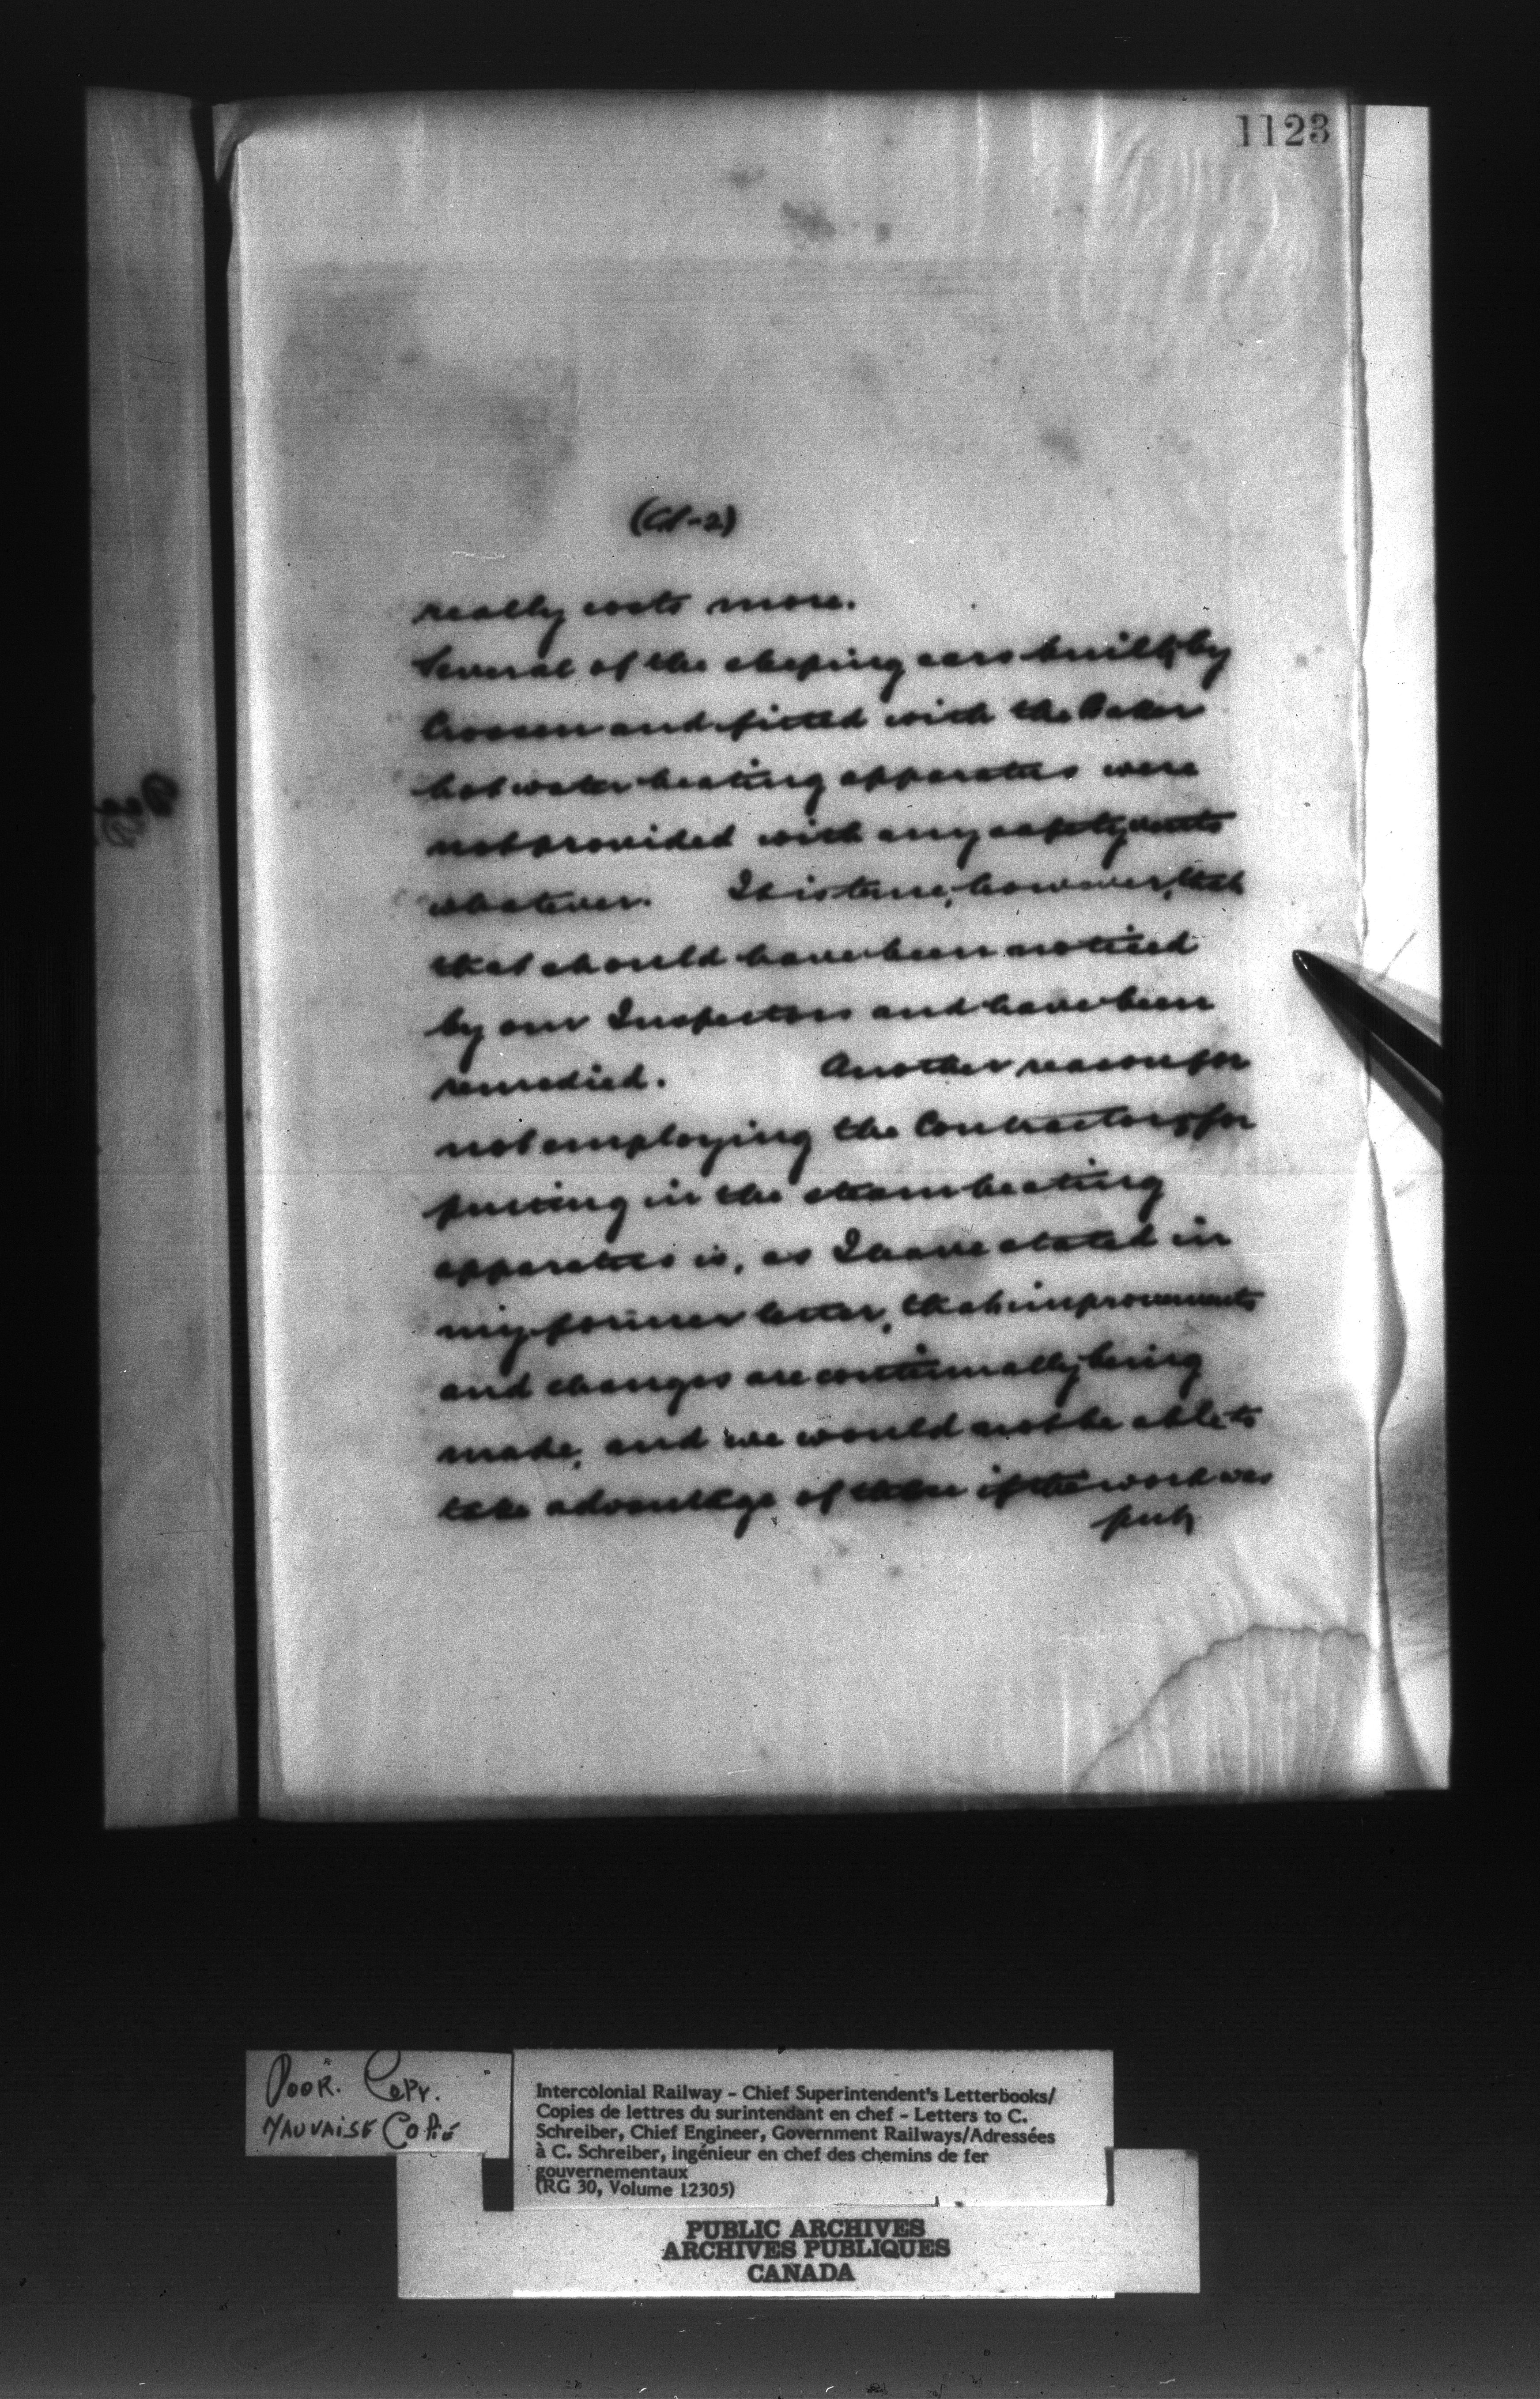 1123
really costs more.
Several of the sleeping cars built by
Crossen and fitted with the Baker
hot water heating apparatus were
not provided with any safety vents
whatever. It is true, however, that
that should have been noticed
by our Inspectors and have been
remedied. Another reason for
not employing the Contractors for
putting in the steam heating
apparatus is, as I have stated in
my former letter, that improvements
and changes are continually being
made, and we would not be able to
take advantage of these if the work was
put
POOR. COPY.
MAUVAISE COPIE
Intercolonial Railway - Chief Superintendent's Letterbooks/
Copies de lettres du surintendant en chef - Letters to C.
Schreiber, Chief Engineer, Government Railways/Adressées
à C. Schreiber, ingénieur en chef des chemins de fer
gouvernementaux
(RG 30, Volume 12305)
PUBLIC ARCHIVES
ARCHIVES PUBLIQUES
CANADA